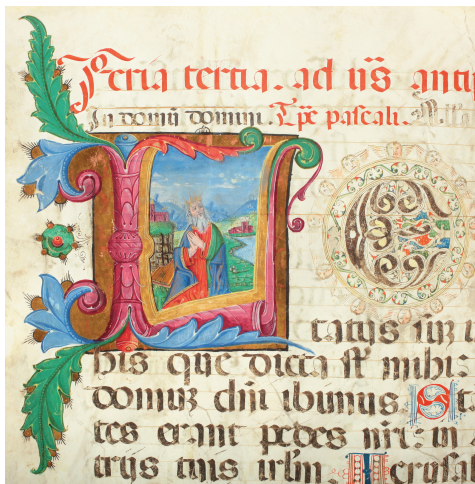 Feria tertia. ad vs̄ antip
In domū domini. Tp̄e pascali. Alla
LEtatus sum i
his que dicta st̄ mihi:
domuz dn̄i ibimus Sta
tes erant pedes nr̄i: in
trijs tuis irlm̄. Ierusal